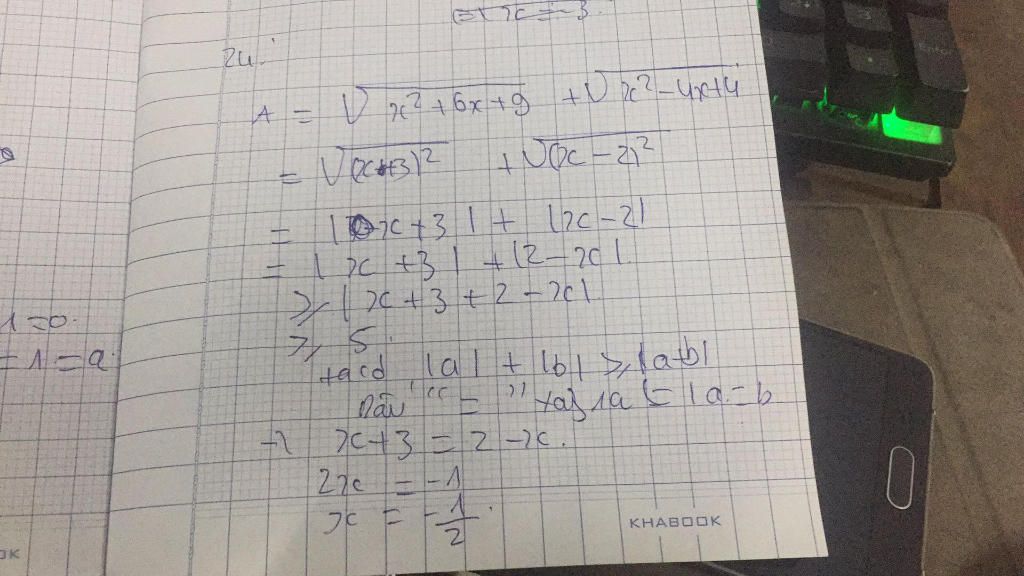 <=> x = -3.
24.
A = √x² + 6x + 9 + √x² - 4x + 4
= √(x+3)² + √(x - 2)²
= | x + 3 | + | x - 2 |
= | x + 3 | + | 2 - x |.
⩾ | x + 3 + 2 - x |
⩾ 5.
1 = 0.
- 1 = a.
ta có |a| + |b| ⩾ |a+b|
Dấu " = " xảy ra <=> a = b
-> x + 3 = 2 - x.
2x = -1
x = -1/2.
KHABOOK
OK